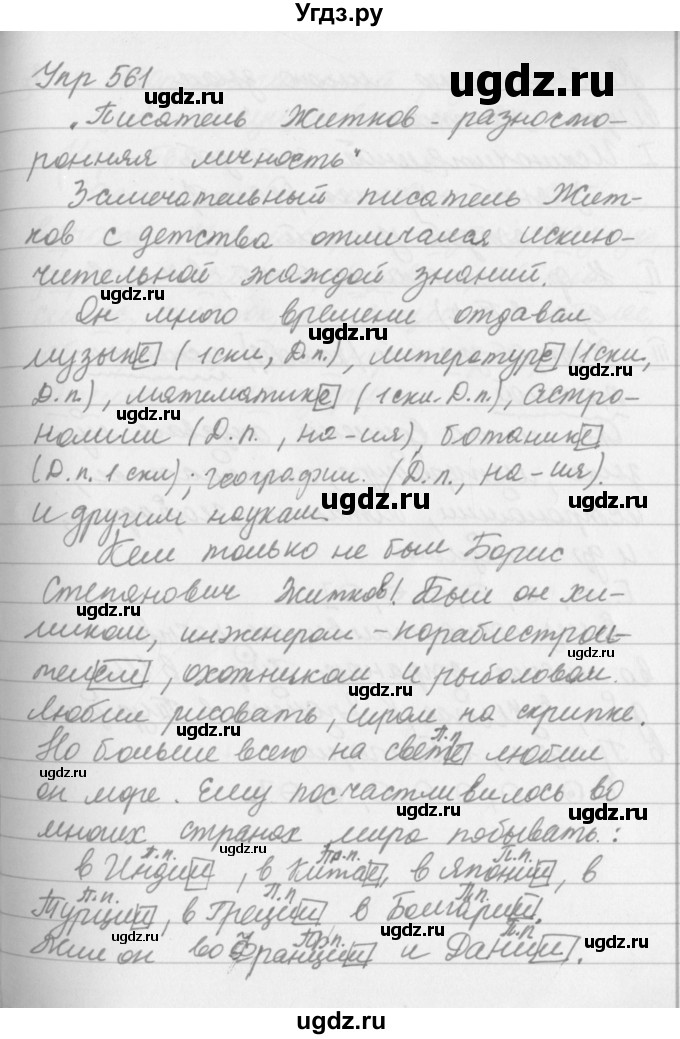 Угдз.ру
Упр 561
"Писатель Житков - разносто-
ронняя личность"
Замечательный писатель Жит-
ков с детства отличался исклю-
чительной жаждой знаний.
Он много времени отдавал
музыке (1 скл, Д.п.), литературе (1 скл,
Д.п.), математике (1 скл. Д.п.), астро-
номии (Д.п., на -ия), ботанике
(Д.п. 1 скл), географии (Д.п., на -ия)
и другим наукам.
Кем только не был Борис
Степанович Житков! Был он хи-
миком, инженером - кораблестрои-
телем, охотником и рыболовом.
Любил рисовать, играл на скрипке.
Но больше всего на свете П.п любил
он море. Ему посчастливилось во
многих странах мира побывать:
в Индии П.п., в Китае Пр.п., в Японии П.п., в
Турции П.п., в Греции П.п в Болгарии П.п.
Жил он во Франции Пр.п. и Дании П.п.
ugdz.ru